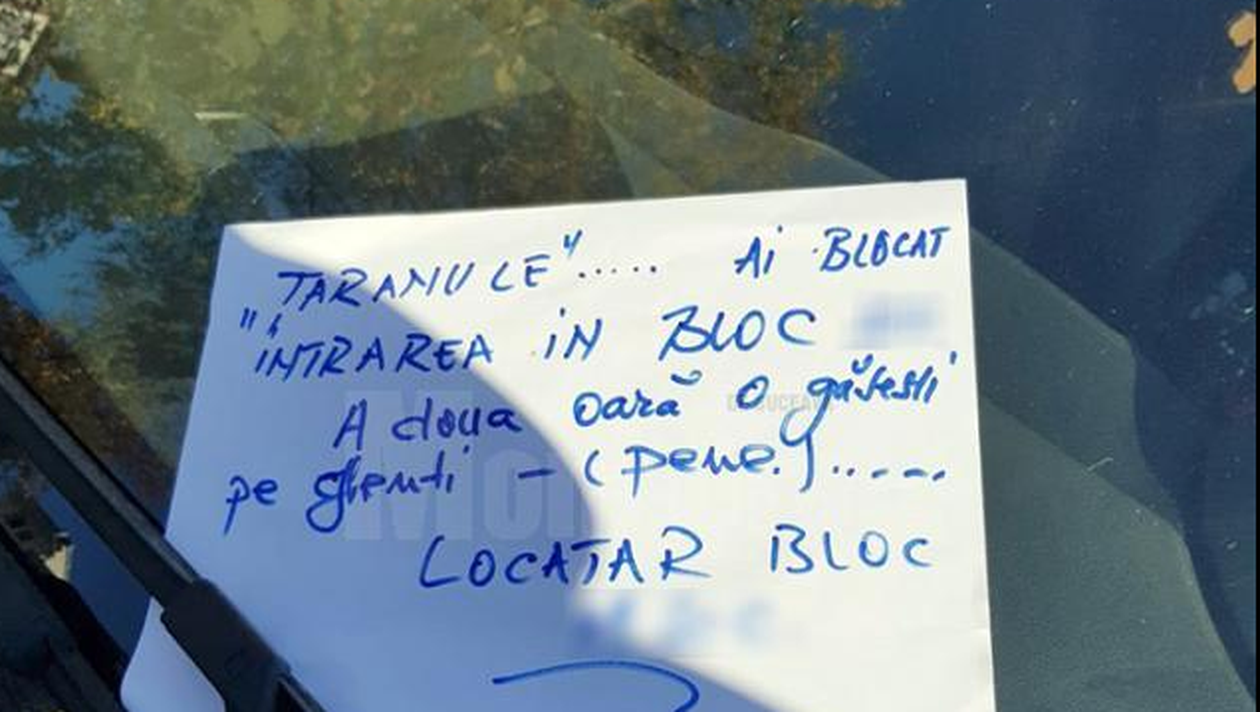 "TARANULE"..... Ai BLOCAT
INTRAREA iN BLOC
A doua oară o găsesti
pe genti - (pene.).....
LOCATAR BLOC